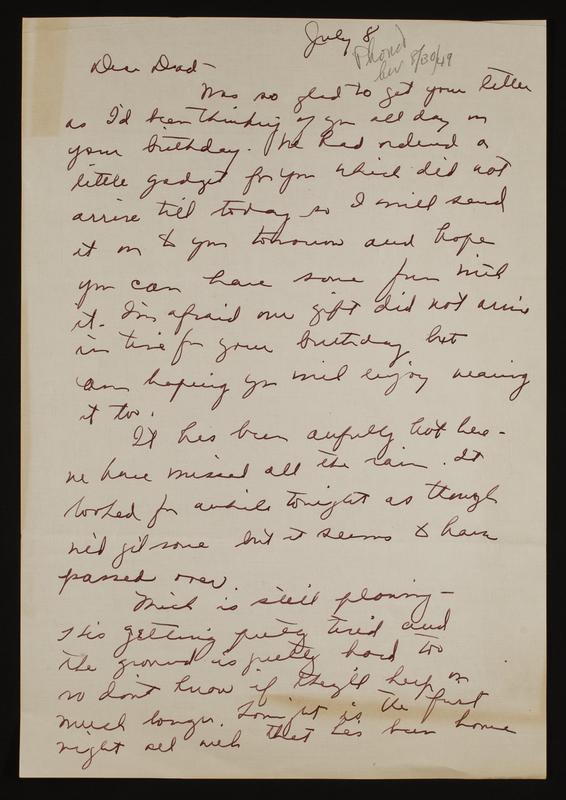 July 8
Phoned
her 8/30/49
Dear Dad-
Was so glad to get your letter
as I'd been thinking of you all day on
your birthday. We had ordered a
little gadget for you which did not
arrive till today so I will send
it on to you tomorrow and hope
you can have some fun with
it. I'm afraid our gift did not arrive
in time for your birthday but
am hoping you will enjoy wearing
it too.
It has been awfully hot here-
we have missed all the rain. It
looked for awhile tonight as though
we'd get some but it seems to have
passed over.
Mick is still plowing-
& is getting pretty tired and
the ground is pretty hard too
so don't know if they'll keep on
much longer. Tonight is the first
night all week that has been home